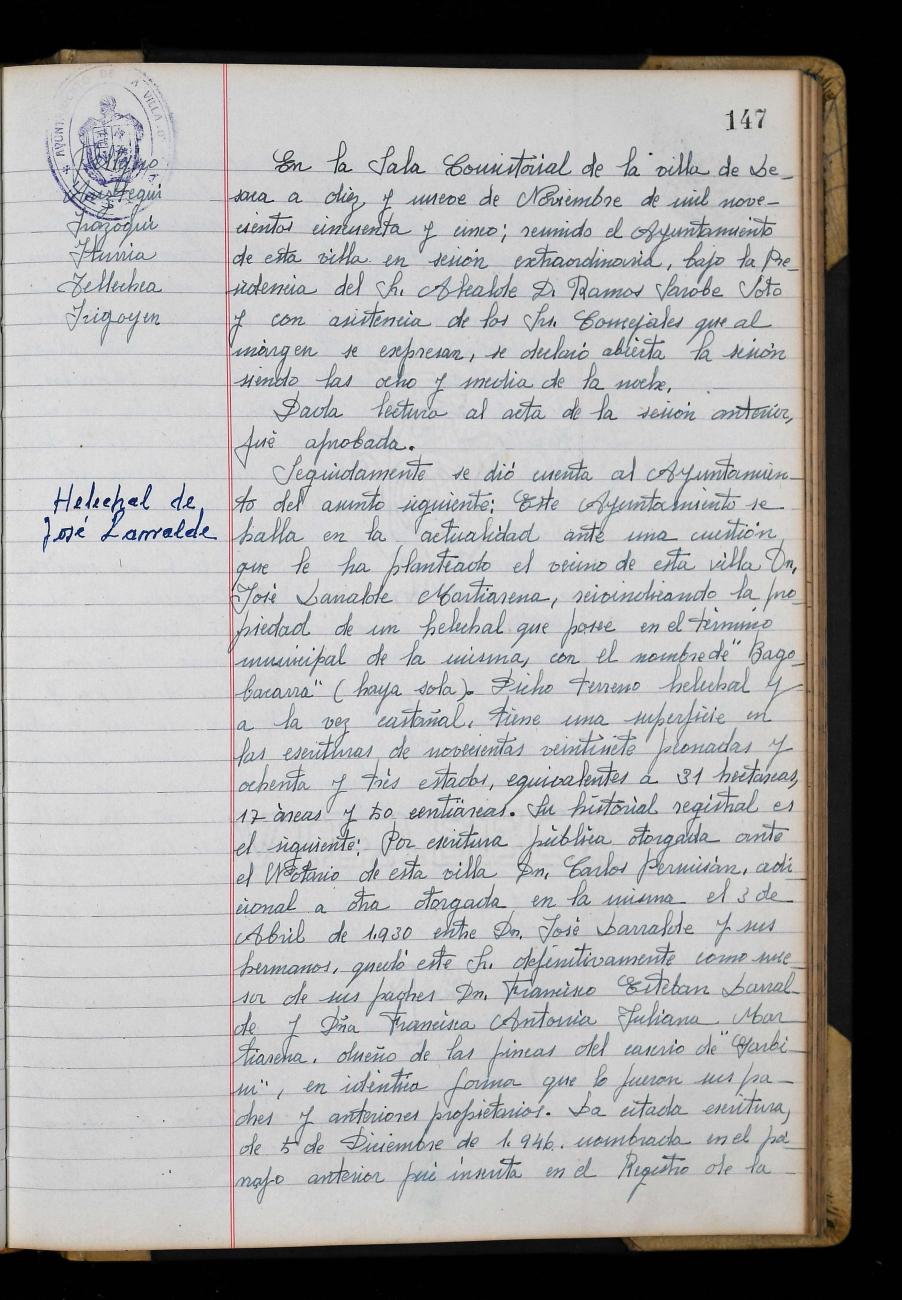 147
Irazoqui
Iturria
Tellechea
Irigoyen
En la Sala Consistorial de la villa de Le-
saca a diez y nueve de Noviembre de mil nove-
cientos cincuenta y cinco; reunido el Ayuntamiento
de esta villa en sesión extraordinaria, bajo la Pre-
sidencia del Sr. Alcalde D. Ramos Sarobe Soto
y con asistencia de los Srs. Concejales que al
márgen se expresan, se declaró abierta la sesión
siendo las ocho y media de la noche.
Dada lectura al acta de la sesión anterior,
fué aprobada.
Seguidamente se dió cuenta al Ayuntamien-
to del asunto siguiente: Este Ayuntamiento se
halla en la actualidad ante una cuestión
que le ha planteado el vecino de esta villa Dn.
José Larralde Martiarena, reivindicando la pro-
piedad de un helechal que posee en el término
municipal de la misma, con el nombre de "Bago-
bacarra" (haya sola). Dicho terreno helechal y
a la vez castañal, tiene una superficie en
las escrituras de novecientas veintisiete peonadas y
ochenta y trés estados, equivalentes a 31 hectáreas,
17 áreas y 50 centiáreas. Su historial registral es
el siguiente: Por escritura pública otorgada ante
el Notario de esta villa Dn. Carlos Permisán, adi-
cional a otra otorgada en la misma el 3 de
Abril de 1.930 entre Dn. José Larralde y sus
hermanos, quedó este Sr. definitivamente como suce-
sor de sus padres Dn. Francisco Esteban Larral-
de y Dña Francisca Antonia Juliana Mar
tiarena, dueño de las fincas del caserio de "Yarbi-
ni", en idéntica forma que lo fueron sus pa-
dres y anteriores propietarios. La citada escritura,
de 5 de Diciembre de 1.946. nombrada en el pá-
rrafo anterior fué inscrita en el Registro de la
Helechal de
José Larralde